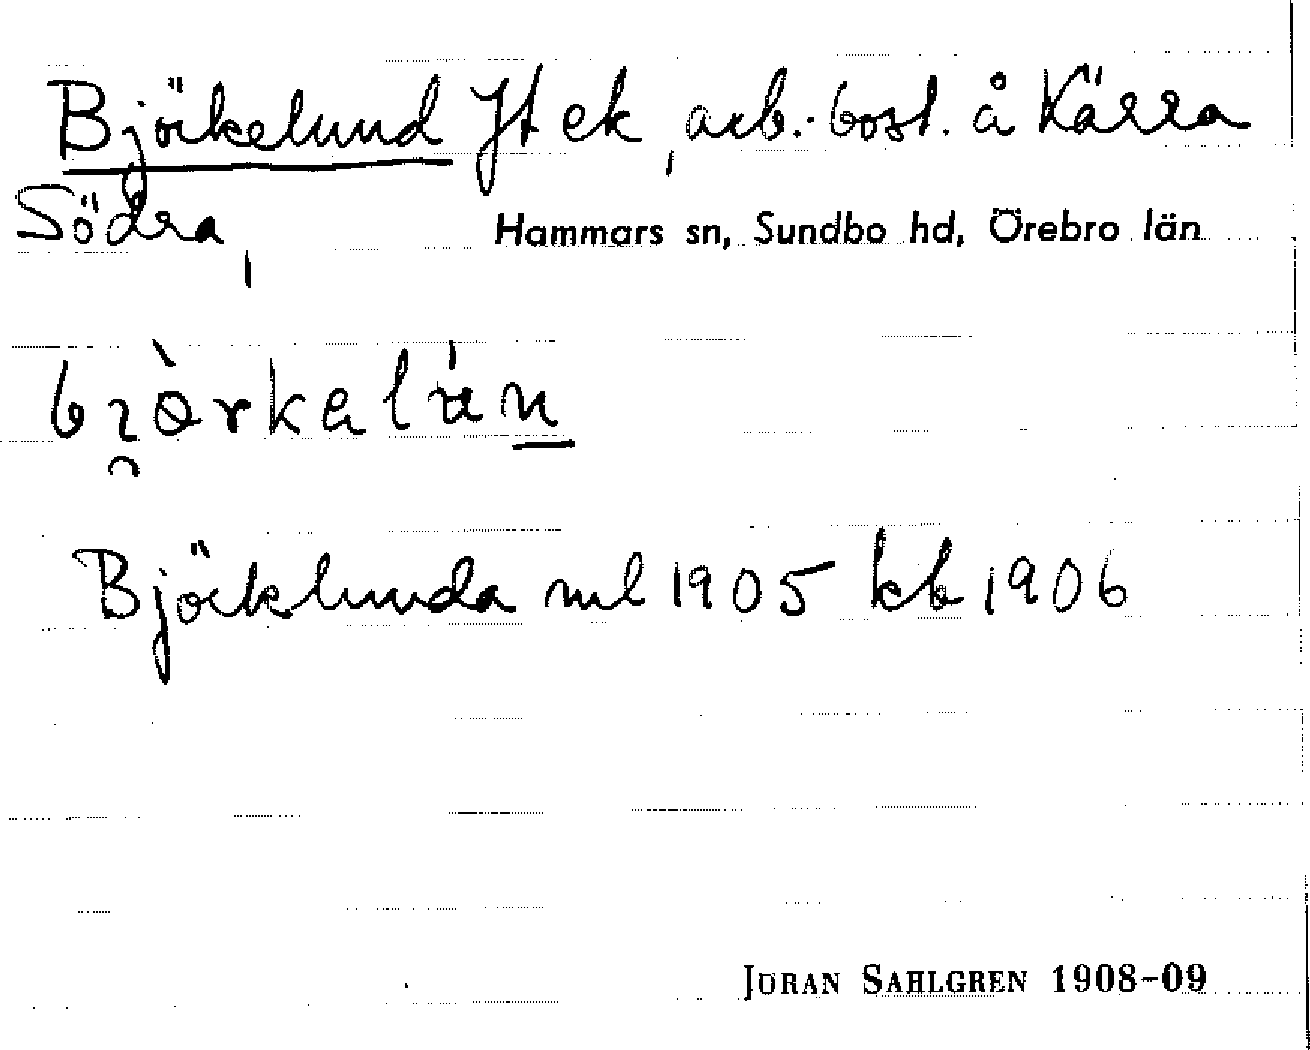 Björkelund Jt ek, arb.-bost. å Kärra
Södra, Hammars sn, Sundbo hd, Örebro län
Björklunda ml 1905 kb 1906
JÖRAN SAHLGREN 1908-09